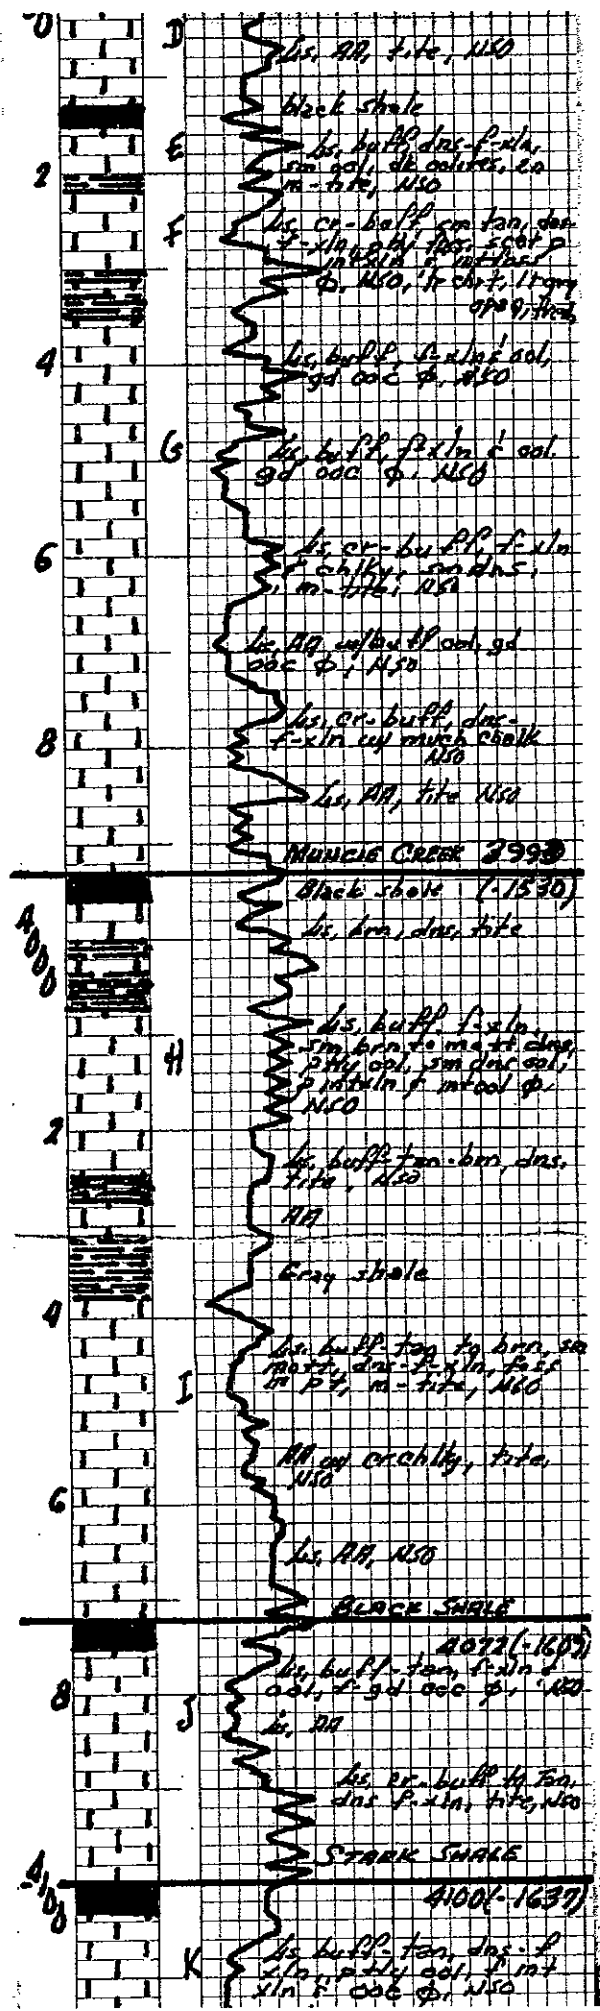 0
D
Ls, AA, tite, NSO
black shale
E
Ls, buff, dns-f-xln,
sm ool, dk oolites,
2
m-tite, NSO
F
Ls, cr-buff, sm tan, dns-
f-xln, ptly foss, scat p
intxln
φ, NSO, tr chrt, lt gry
opaq,
4
Ls, buff, f-xln & ool,
gd ooc φ, NSO
G
Ls, buff, f-xln & ool.
gd ooc φ, NSO
6
Ls, cr-buff, f-xln
chlky, sm dns,
m-tite, NSO
Ls, AA, w/buff ool, gd
ooc φ, NSO
8
Ls, cr-buff, dns-
f-xln w/ much chalk
NSO
Ls, AA, tite NSO
MUNCIE CREEK 3993
Black shale (-1530)
4000
Ls, brn, dns, tite
H
Ls, buff, f-xln,
sm brn to mott dns,
ptly ool, sm dns ool,
p intxln & intool φ,
NSO
2
Ls, buff-tan-brn, dns,
tite, NSO
AA
Gray shale
4
Ls, buff-tan to brn, sm
mott, dns-f-xln, foss
I
m pt, m-tite, NSO
AA w/ cr chlky, tite,
NSO
6
Ls, AA, NSO
BLACK SHALE
4072 (-1609)
Ls, buff-tan, f-xln &
8
ool, f-gd ooc φ, NSO
J
Ls, AA
Ls, cr-buff to tan,
dns f-xln, tite, NSO
STARK SHALE
4,100
4100 (-1637)
K
Ls, buff-tan, dns-f
xln, ptly ool, f int
xln & ooc φ, NSO